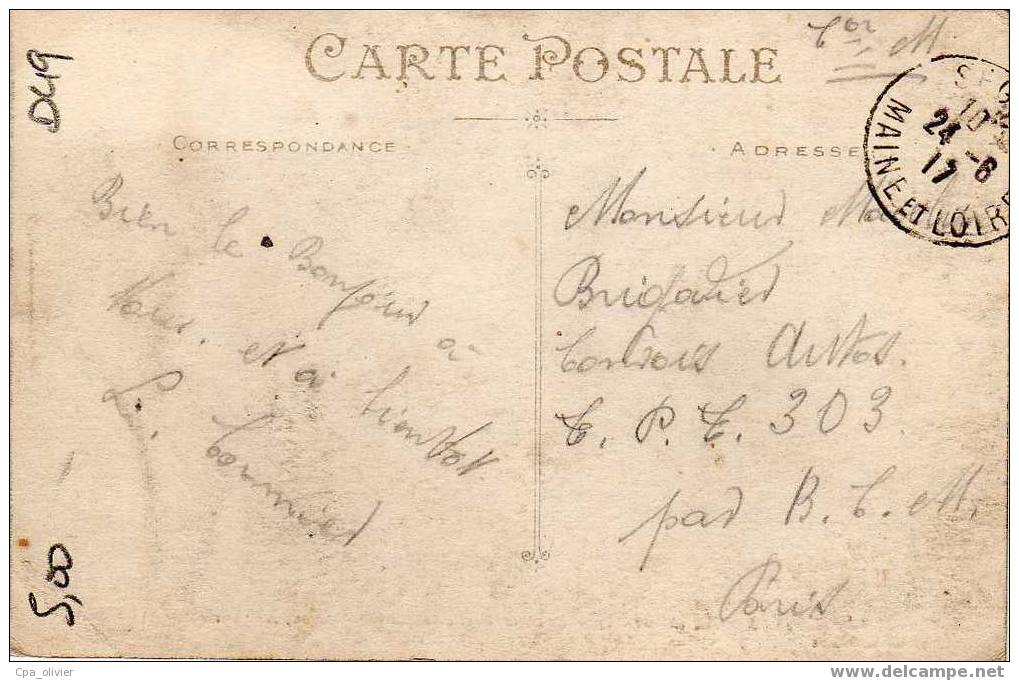 D49
CARTE POSTALE
M.
CORRESPONDANCE
ADRESSE
24 -6
17
MAINE ET LOIRE
Bien le Bonjour à
Vous. et à bientôt
L.
Monsieur
Brigadier
Convois Autos.
T. P. T. 303.
par B. C. M.
Paris.
5,00
Cpa_olivier
www.delcampe.net